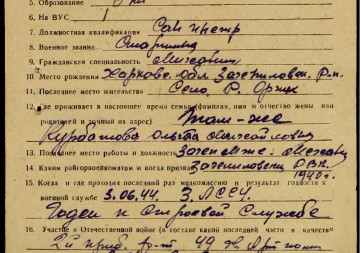 5. Образование
6. На ВУС 1
7. Должностная квалификация Сан
8. Военное звание Старшина
9. Гражданская специальность Механик
10. Место рождения Харьков. обл. Зачепиловск. р-н.
11. Последнее место жительства Село
12. Где проживает в настоящее время семья (фамилия, имя и отчество жены или
родителей и точный их адрес) Там-же
Курбатова Ольга Михайловна
13. Последнее место работы и должность Зачепилов. Механик
14. Каким райгорвоенкоматом и когда призван Зачепиловский РВК.
1940 г.
15. Когда и где проходил последний раз медкомиссию и результат годности к
военной службе 3.06.44. 3 ЛССУ.
Годен к Строевой Службе
16. Участие в Отечественной войне (в составе какой последней части и качестве)
49